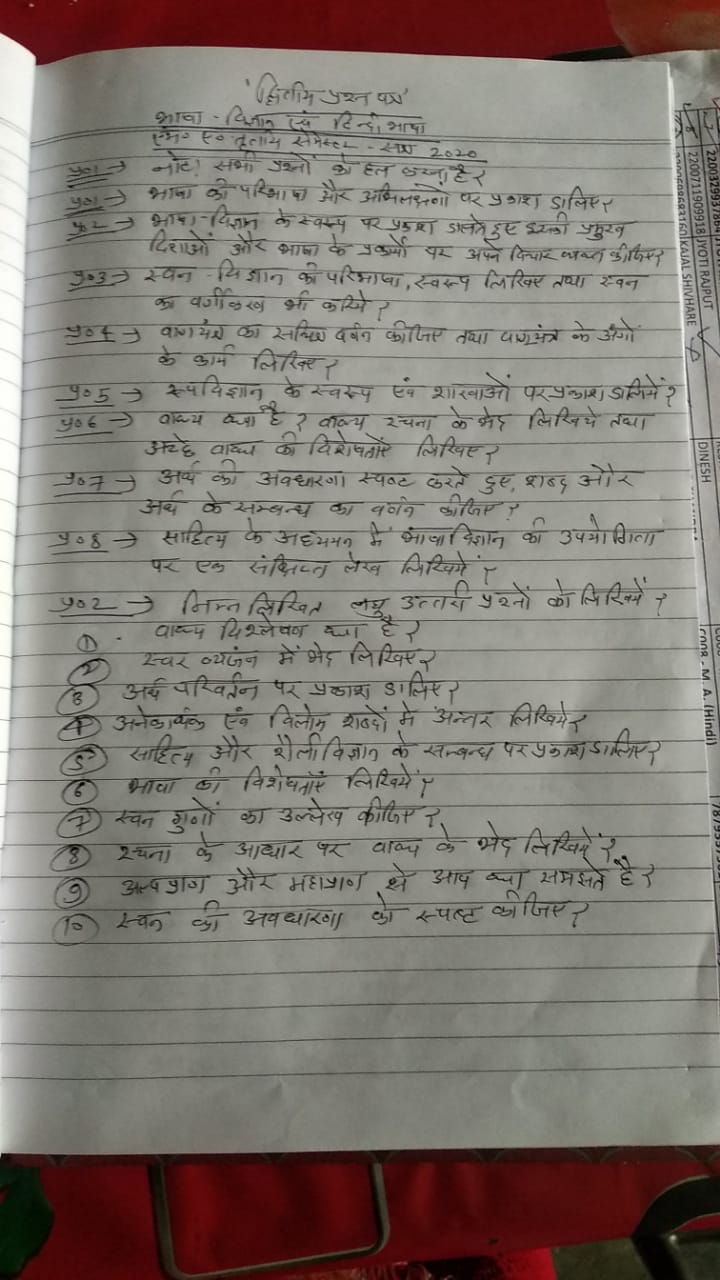 'द्वितीय प्रश्न पत्र'
भाषा - विज्ञान एवं हिन्दी भाषा
एम० ए० तृतीय सेमेस्टर - सत्र 2020
प्र०1 → नोट! सभी प्रश्नों को हल करना है?
प्र०1 → भाषा की परिभाषा और अभिलक्षणों पर प्रकाश डालिए?
प्र०2 → भाषा-विज्ञान के स्वरूप पर प्रकाश डालते हुए इसकी प्रमुख
दिशाओं और भाषा के प्रकार्यों पर अपने विचार व्यक्त कीजिए?
प्र०3 → स्वन - विज्ञान की परिभाषा, स्वरूप लिखिए तथा स्वन
का वर्गीकरण भी करिये?
प्र०4 → वागयंत्र का सचित्र वर्णन कीजिए तथा वागयंत्र के अंगों
के कार्य लिखिए?
प्र०5 → रूपविज्ञान के स्वरूप एवं शाखाओं पर प्रकाश डालिये?
प्र०6 → वाक्य क्या है? वाक्य रचना के भेद लिखिये तथा
अच्छे वाक्य की विशेषताएँ लिखिए?
प्र०7 → अर्थ की अवधारणा स्पष्ट करते हुए, शब्द और
अर्थ के सम्बन्ध का वर्णन कीजिए?
प्र०8 → साहित्य के अध्ययन में भाषा विज्ञान की उपयोगिता
पर एक संक्षिप्त लेख लिखिये?
प्र०2 → निम्नलिखित लघु उत्तरी प्रश्नों को लिखिये?
① वाक्य विश्लेषण क्या है?
② स्वर व्यंजन में भेद लिखिए?
③ अर्थ परिवर्तन पर प्रकाश डालिए?
④ अनेकार्थक एवं विलोम शब्दों में अन्तर लिखिये?
⑤ साहित्य और शैलीविज्ञान के सम्बन्ध पर प्रकाश डालिए?
⑥ भाषा की विशेषताएँ लिखिये?
⑦ स्वन गुणों का उल्लेख कीजिए?
⑧ रचना के आधार पर वाक्य के भेद लिखिये?
⑨ अल्पप्राण और महाप्राण से आप क्या समझते है?
⑩ स्वन की अवधारणा को स्पष्ट कीजिए?
2200711909918 JYOTI RAJPUT
KAJAL SHIVHARE
DINESH
M. A. (Hindi)